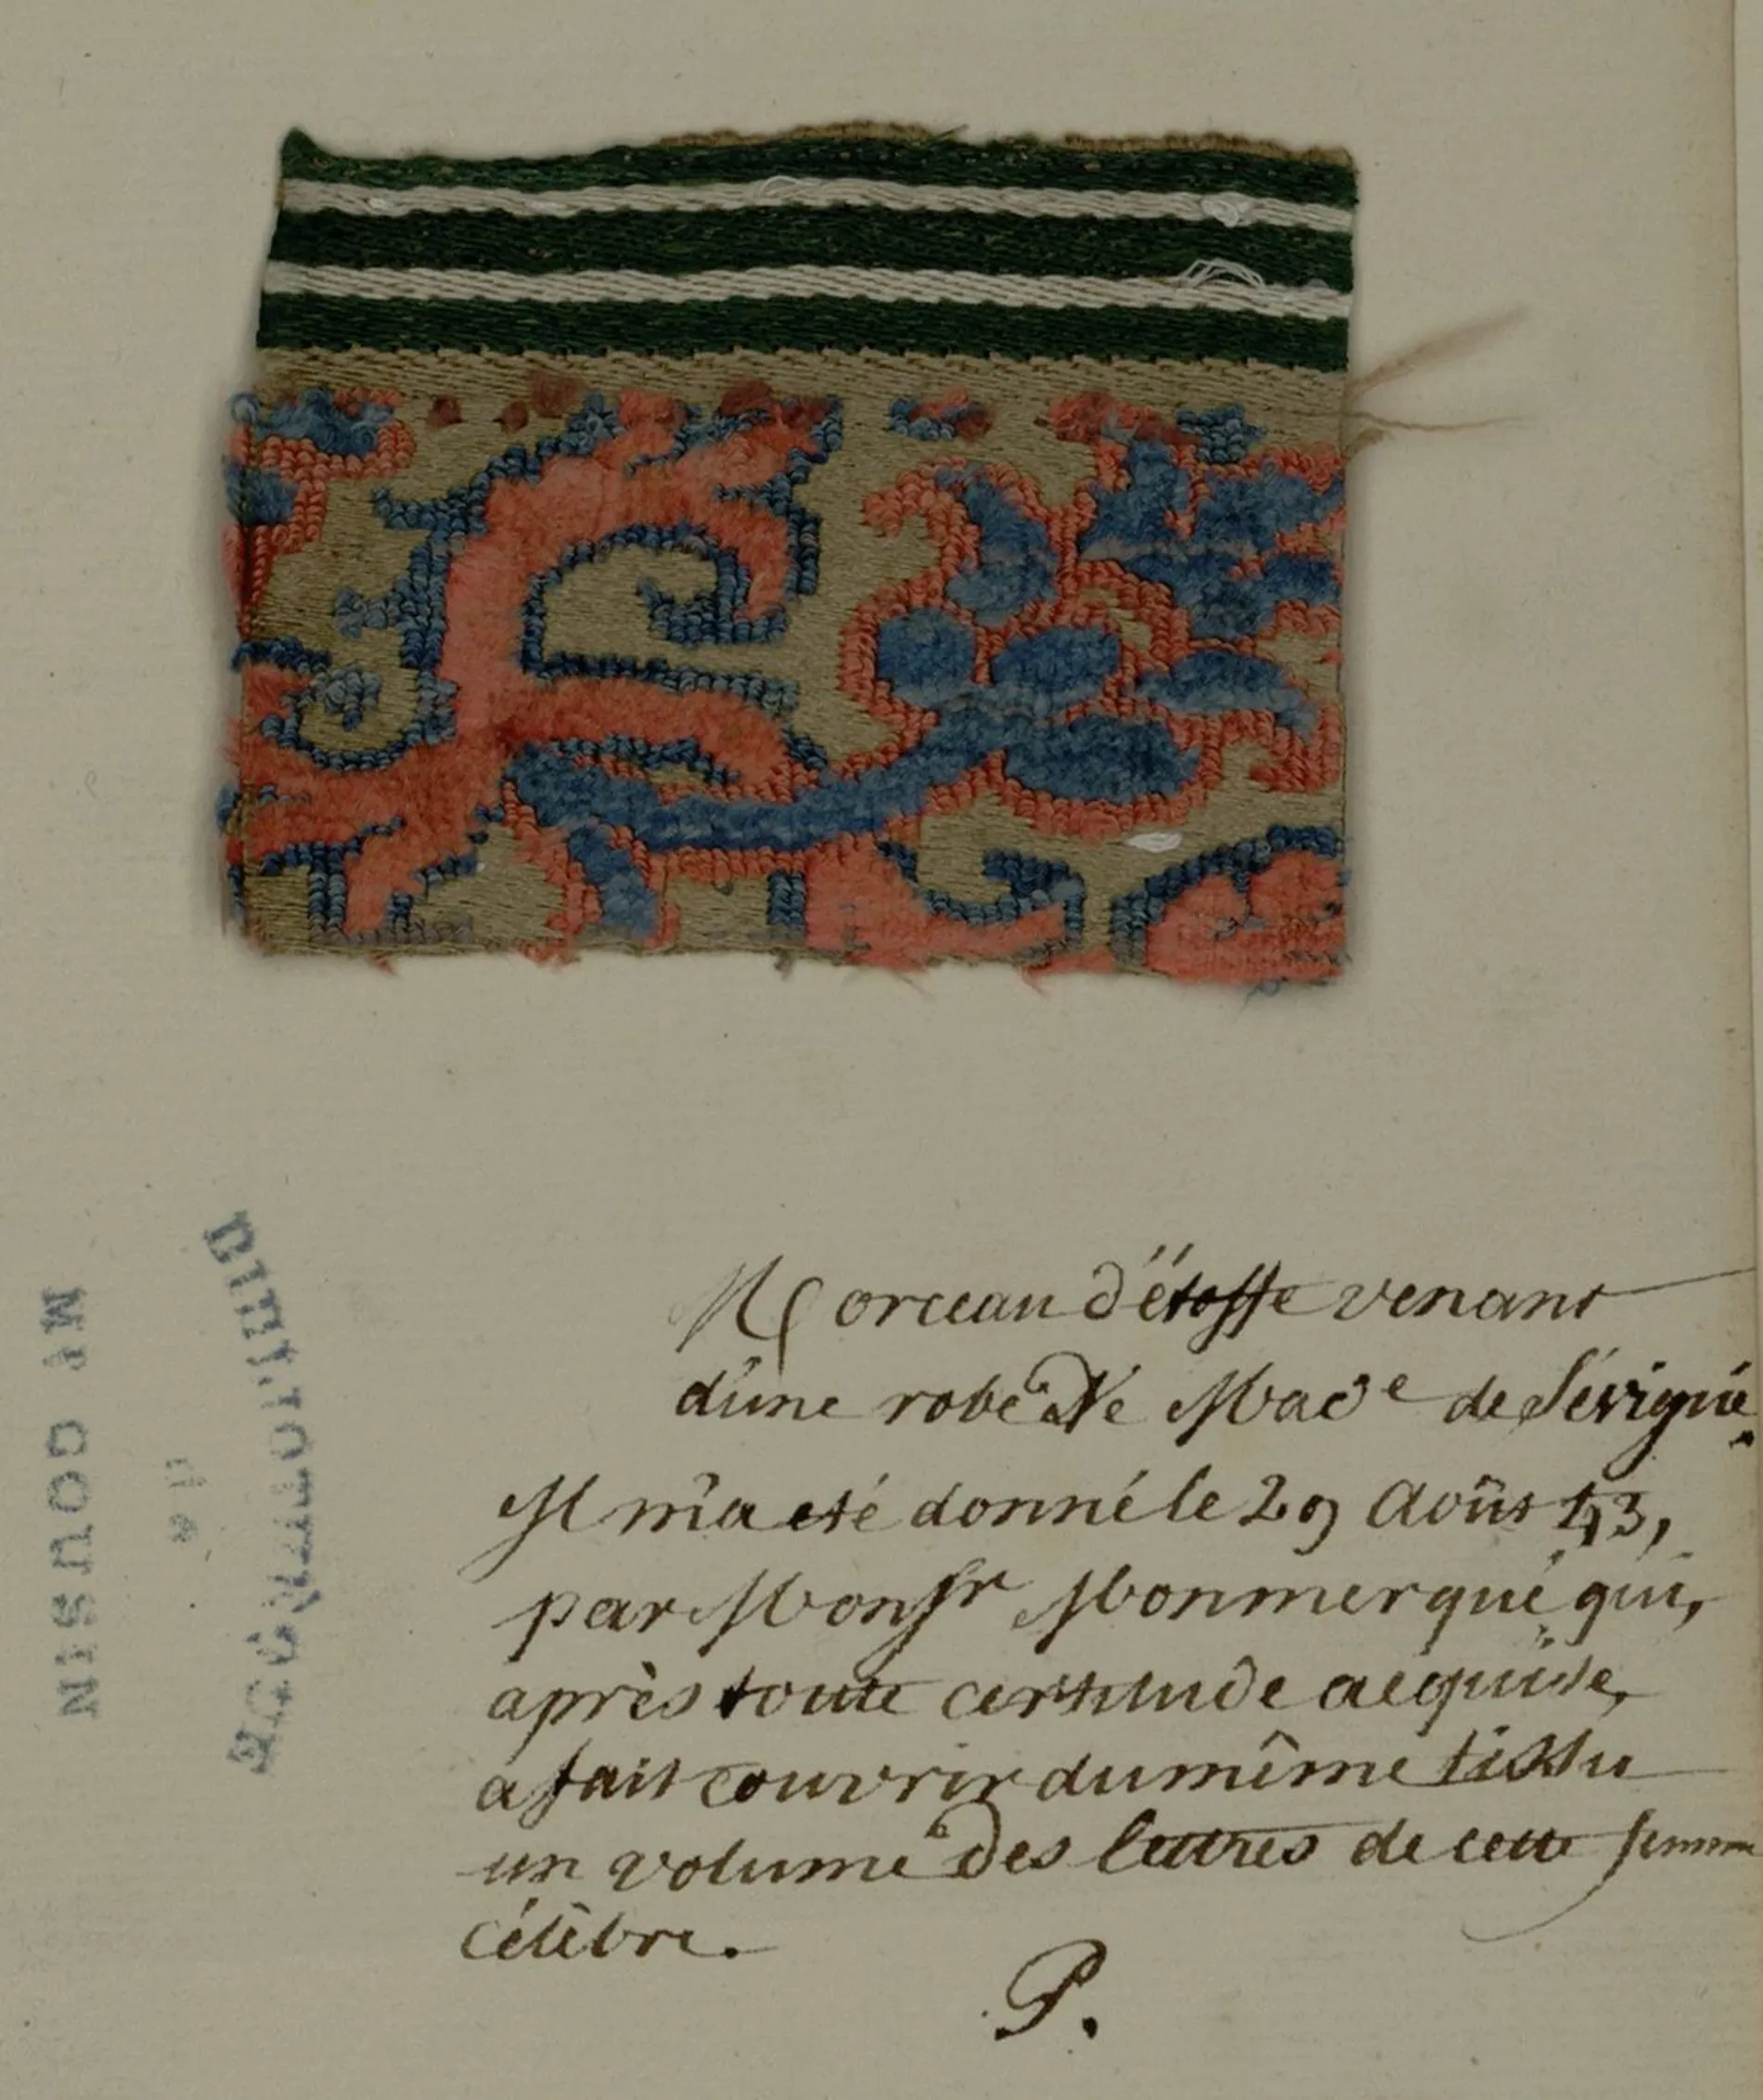 Morceau d'étoffe venant
d'une robe De Made de Sévigné.
Il m'a eté donné le 29 Août 43,
par Monsr Monmerqué qui,
après toute certitude acquise,
a fait couvrir du même tissu
un volume Des lettres de cette femme
célèbre.
P.
BIBLIOTHÈQUE
de
Mr COUSIN